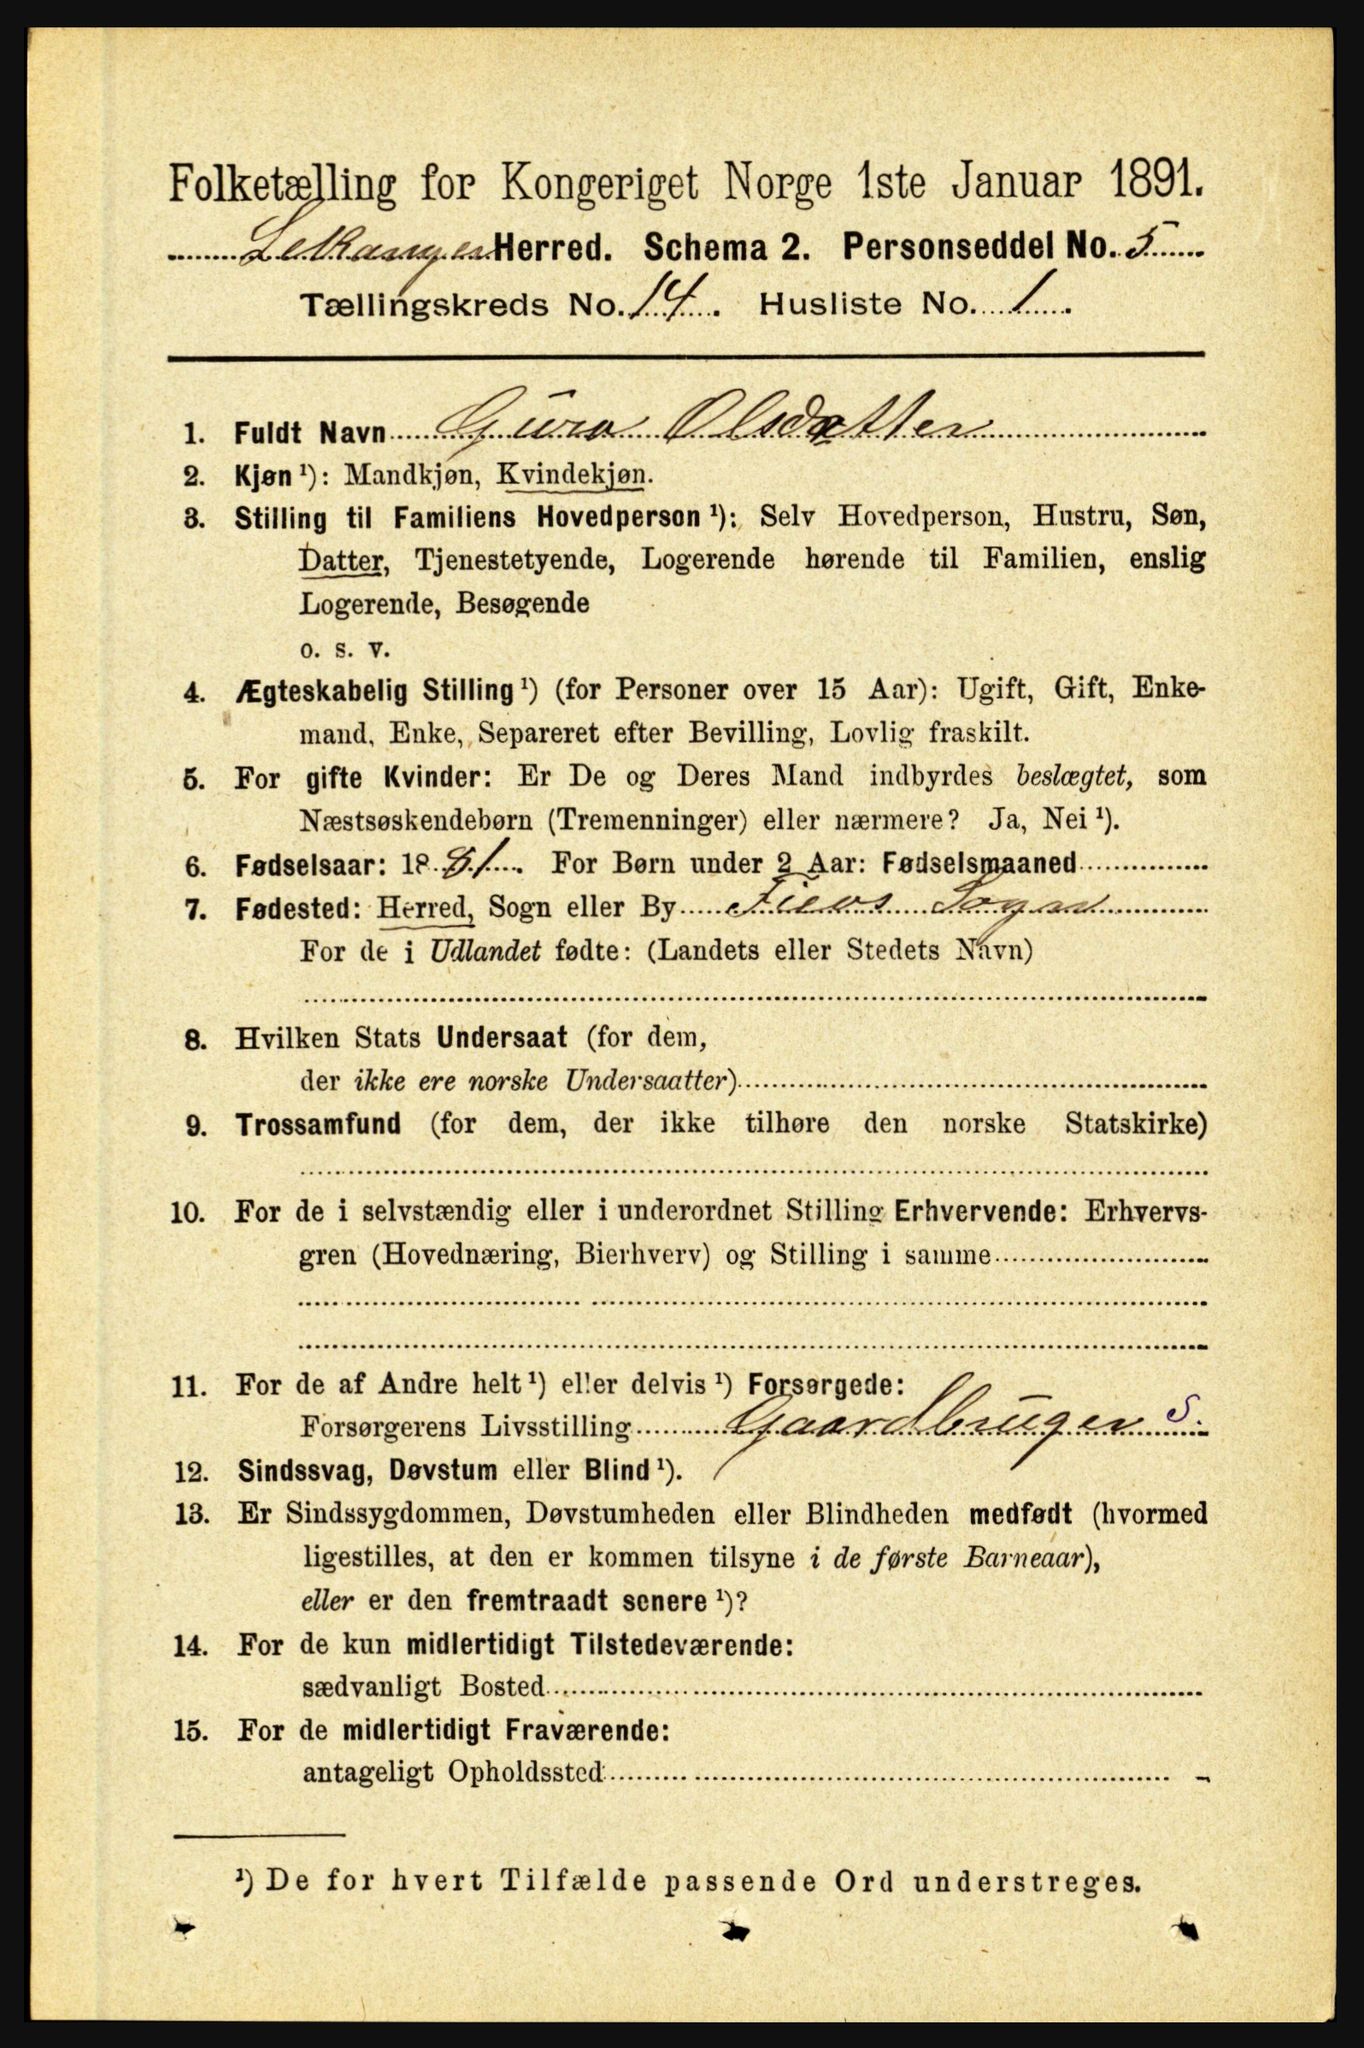 Folketælling for Kongeriget Norge 1ste Januar 1891.
Lekanger Herred. Schema 2. Personseddel No. 5
Tællingskreds No. 14. Husliste No. 1.
1. Fuldt Navn Guro Olsdatter
2. Kjøn ¹): Mandkjøn, Kvindekjøn.
3. Stilling til Familiens Hovedperson ¹): Selv Hovedperson, Hustru, Søn,
Datter, Tjenestetyende, Logerende hørende til Familien, enslig
Logerende, Besøgende
o. s. v.
4. Ægteskabelig Stilling ¹) (for Personer over 15 Aar): Ugift, Gift, Enke-
mand, Enke, Separeret efter Bevilling, Lovlig fraskilt.
5. For gifte Kvinder: Er De og Deres Mand indbyrdes beslægtet, som
Næstsøskendebørn (Tremenninger) eller nærmere? Ja, Nei ¹).
6. Fødselsaar: 1881. For Børn under 2 Aar: Fødselsmaaned
7. Fødested: Herred, Sogn eller By Sogn
For de i Udlandet fødte: (Landets eller Stedets Navn)
8. Hvilken Stats Undersaat (for dem,
der ikke ere norske Undersaatter)
9. Trossamfund (for dem, der ikke tilhøre den norske Statskirke)
10. For de i selvstændig eller i underordnet Stilling Erhvervende: Erhvervs-
gren (Hovednæring, Bierhverv) og Stilling i samme
11. For de af Andre helt ¹) eller delvis ¹) Forsørgede:
Forsørgerens Livsstilling Gaardbruger S.
12. Sindssvag, Døvstum eller Blind ¹).
13. Er Sindssygdommen, Døvstumheden eller Blindheden medfødt (hvormed
ligestilles, at den er kommen tilsyne i de første Barneaar),
eller er den fremtraadt senere ¹)?
14. For de kun midlertidigt Tilstedeværende:
sædvanligt Bosted
15. For de midlertidigt Fraværende:
antageligt Opholdssted
¹) De for hvert Tilfælde passende Ord understreges.